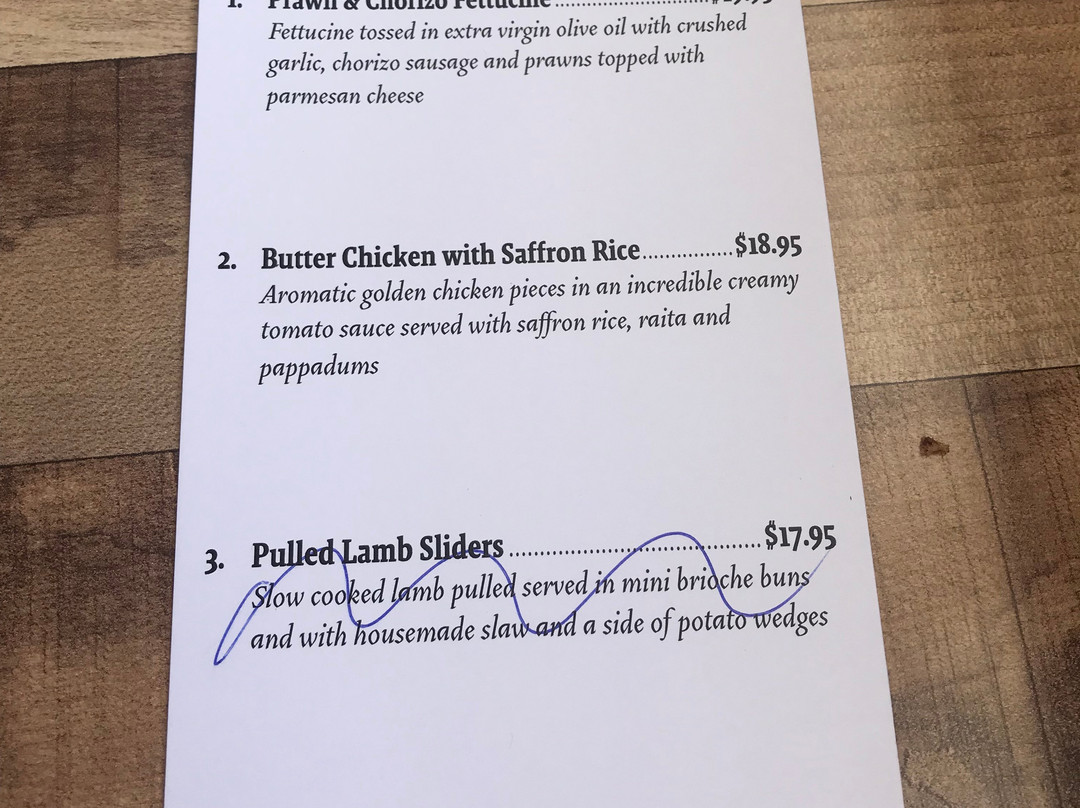 1. Prawn & Chorizo Fettucine
Fettucine tossed in extra virgin olive oil with crushed
garlic, chorizo sausage and prawns topped with
parmesan cheese
2. Butter Chicken with Saffron Rice................$18.95
Aromatic golden chicken pieces in an incredible creamy
tomato sauce served with saffron rice, raita and
pappadums
3. Pulled Lamb Sliders.............................................$17.95
Slow cooked lamb pulled served in mini brioche buns
and with housemade slaw and a side of potato wedges